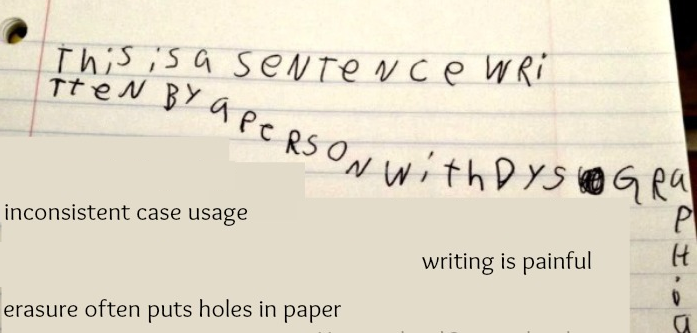 This is a SeNTeNce WRi
TTeN BY a PeRSON WithDYS GRaPHia
inconsistent case usage
writing is painful
erasure often puts holes in paper